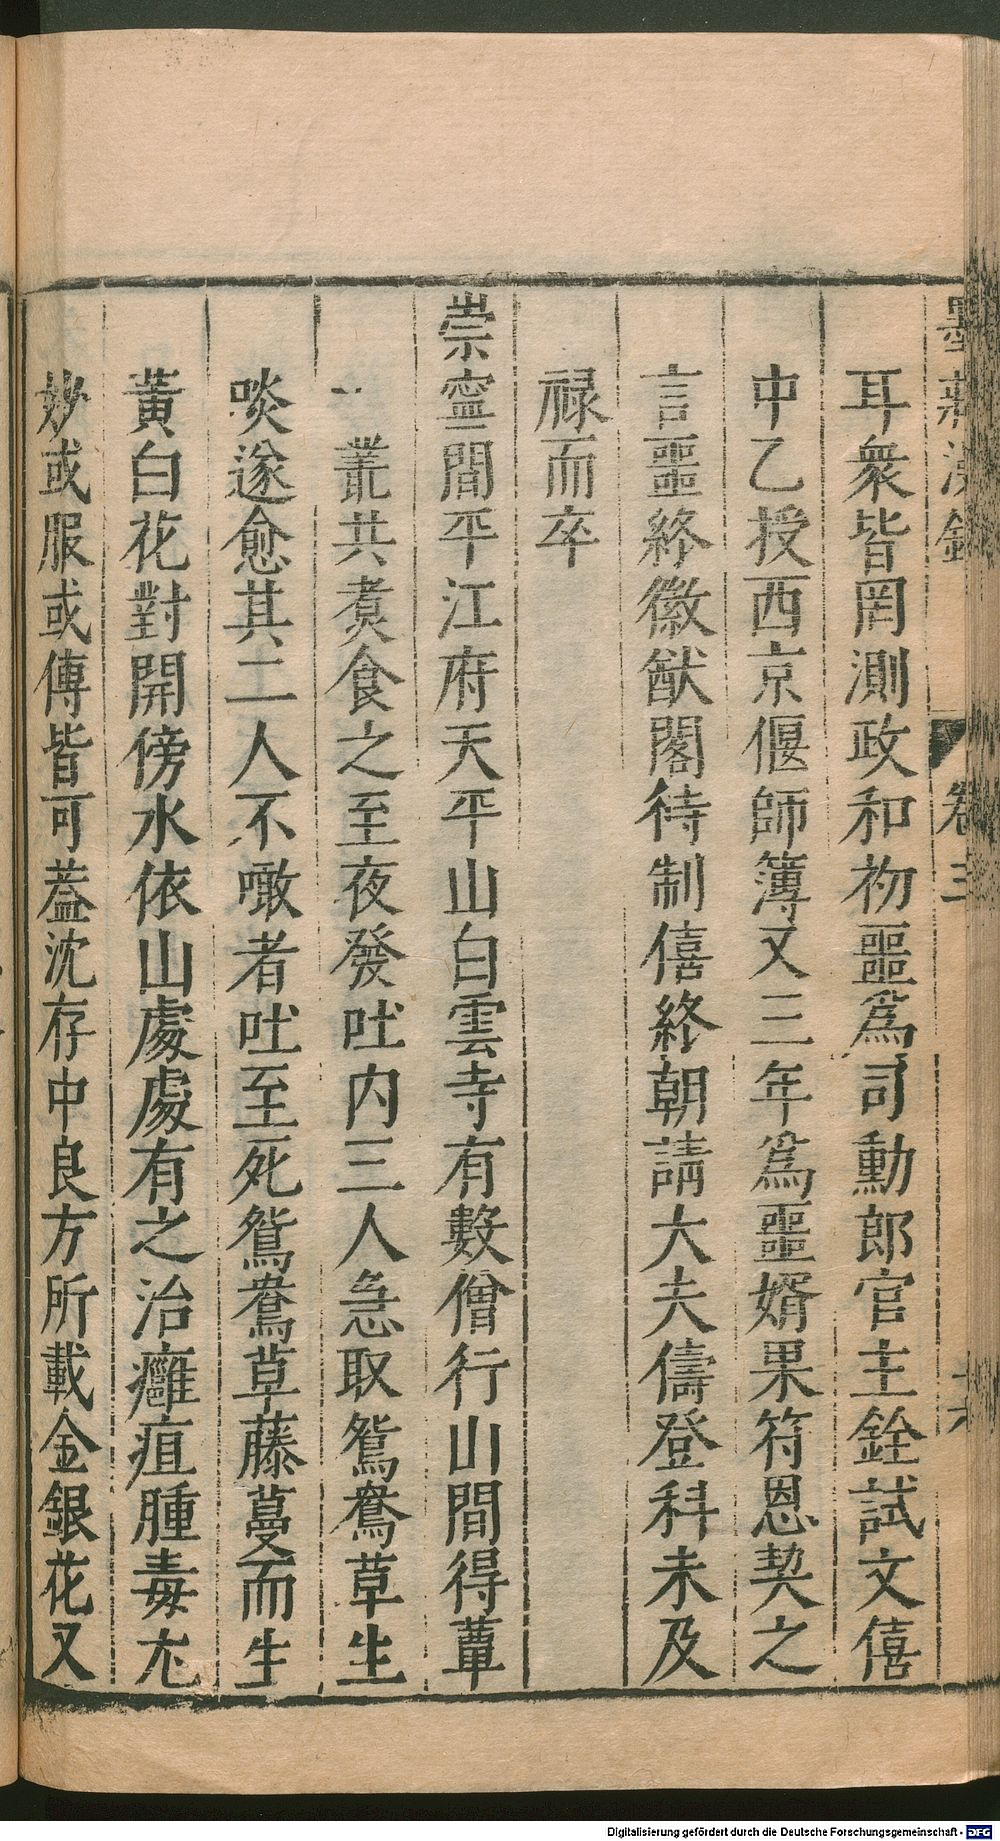 墨莊漫錄 卷三
耳衆皆罔測政和初噩爲司勳郎官主銓試文僖
中乙授西京偃師簿又三年爲噩婿果符恩契之
言噩終徽猷閣待制僖終朝請大夫儔登科未及
祿而卒
崇寧間平江府天平山白雲寺有數僧行山間得蕈
一叢共煑食之至夜發吐内三人急取鴛鴦草生
啖遂愈其二人不噉者吐至死鴛鴦草藤蔓而生
黃白花對開傍水依山處處有之治癰疽腫毒尤
妙或服或傅皆可葢沈存中良方所載金銀花又
Digitalisierung gefördert durch die Deutsche Forschungsgemeinschaft - DFG